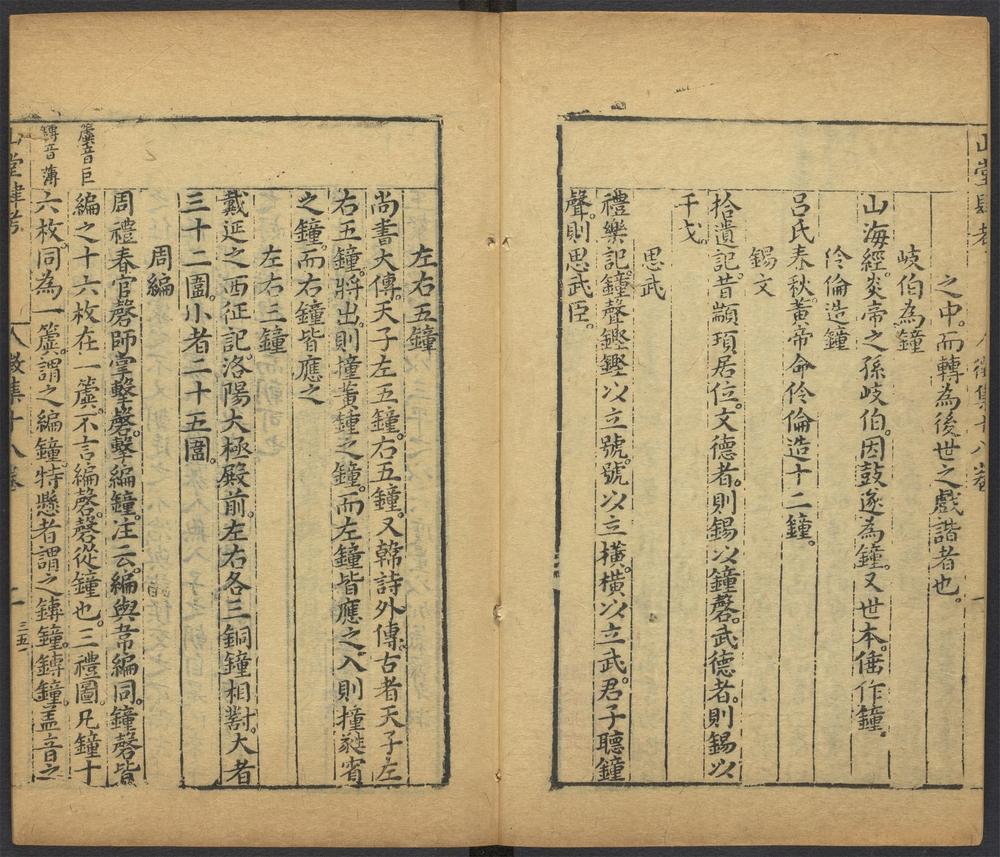 之中。而轉為後世之戲諧者也。
岐伯為鐘
山海經。炎帝之孫岐伯。因鼓遂為鐘。又世本。倕作鐘。
伶倫造鐘
呂氏春秋。黃帝命伶倫造十二鐘。
錫文
拾遺記。昔顓頊居位。文德者。則錫以鐘磬。武德者。則錫以
干戈。
思武
禮樂記。鐘聲鏗。鏗以立號。號以立橫。橫以立武。君子聽鐘
聲。則思武臣。
左右五鐘
尚書大傳。天子左五鐘。右五鐘。又韓詩外傳。古者天子左
右五鐘。將出。則撞黃鍾之鐘。而左鐘皆應之。入則撞蕤賔
之鐘。而右鐘皆應之
左右三鐘
戴延之西征記。洛陽大極殿前。左右各三銅鐘相對。大者
三十二圍。小者二十五圍。
周編
周禮春官磬師掌擊磬。擊編鐘。注云。編與韋編同。鐘磬皆
簴音巨
編之十六枚在一簴。不言編磬。磬從鐘也。三禮圖。凡鐘十
鎛音薄
六枚。同為一簴。謂之編鐘。特懸者謂之鎛鐘。鎛鐘。盖音之
山堂肆考
徵集十八卷
二
三五一